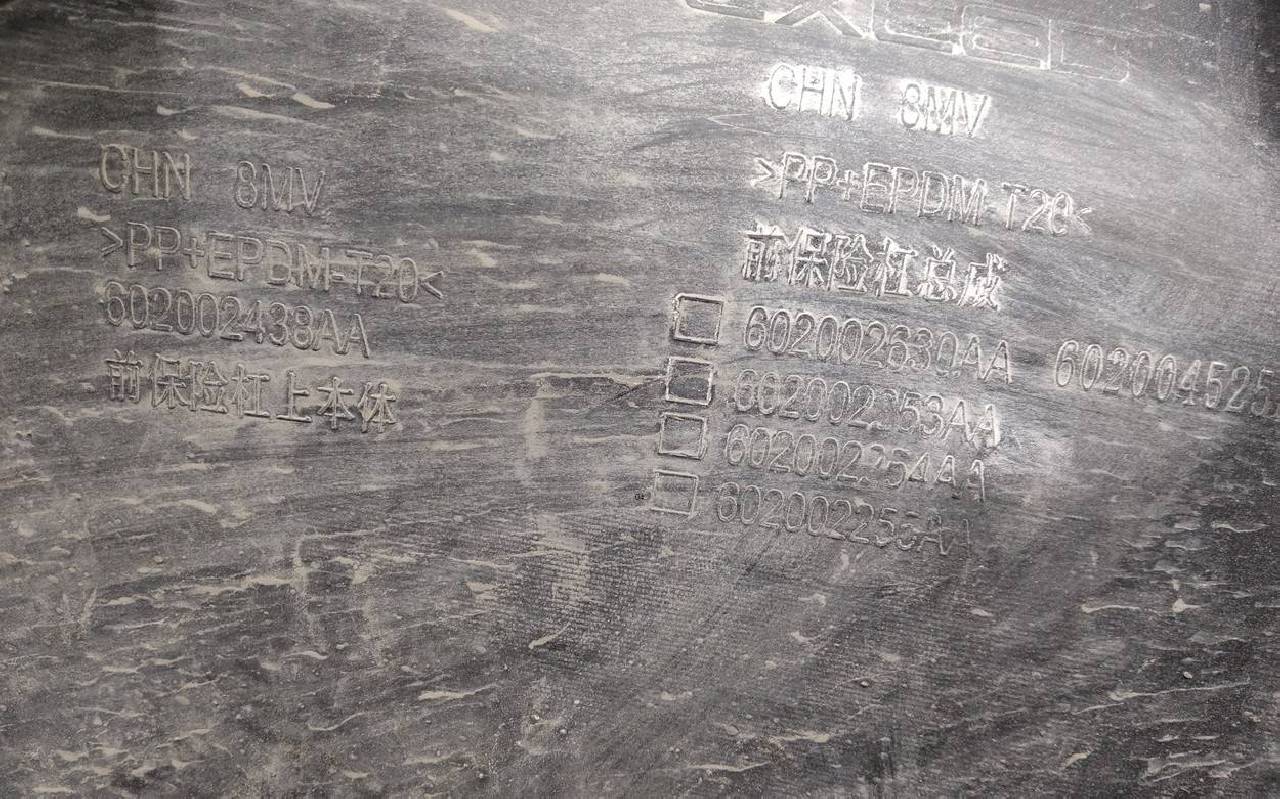 EXEED
CHN 8MV
>PP+EPDM-T20<
602002438AA
前保险杠上本体
CHN 8MV
>PP+EPDM-T20<
前保险杠总成
602002630AA 602004525
602002253AA
602002254AA
602002255AA